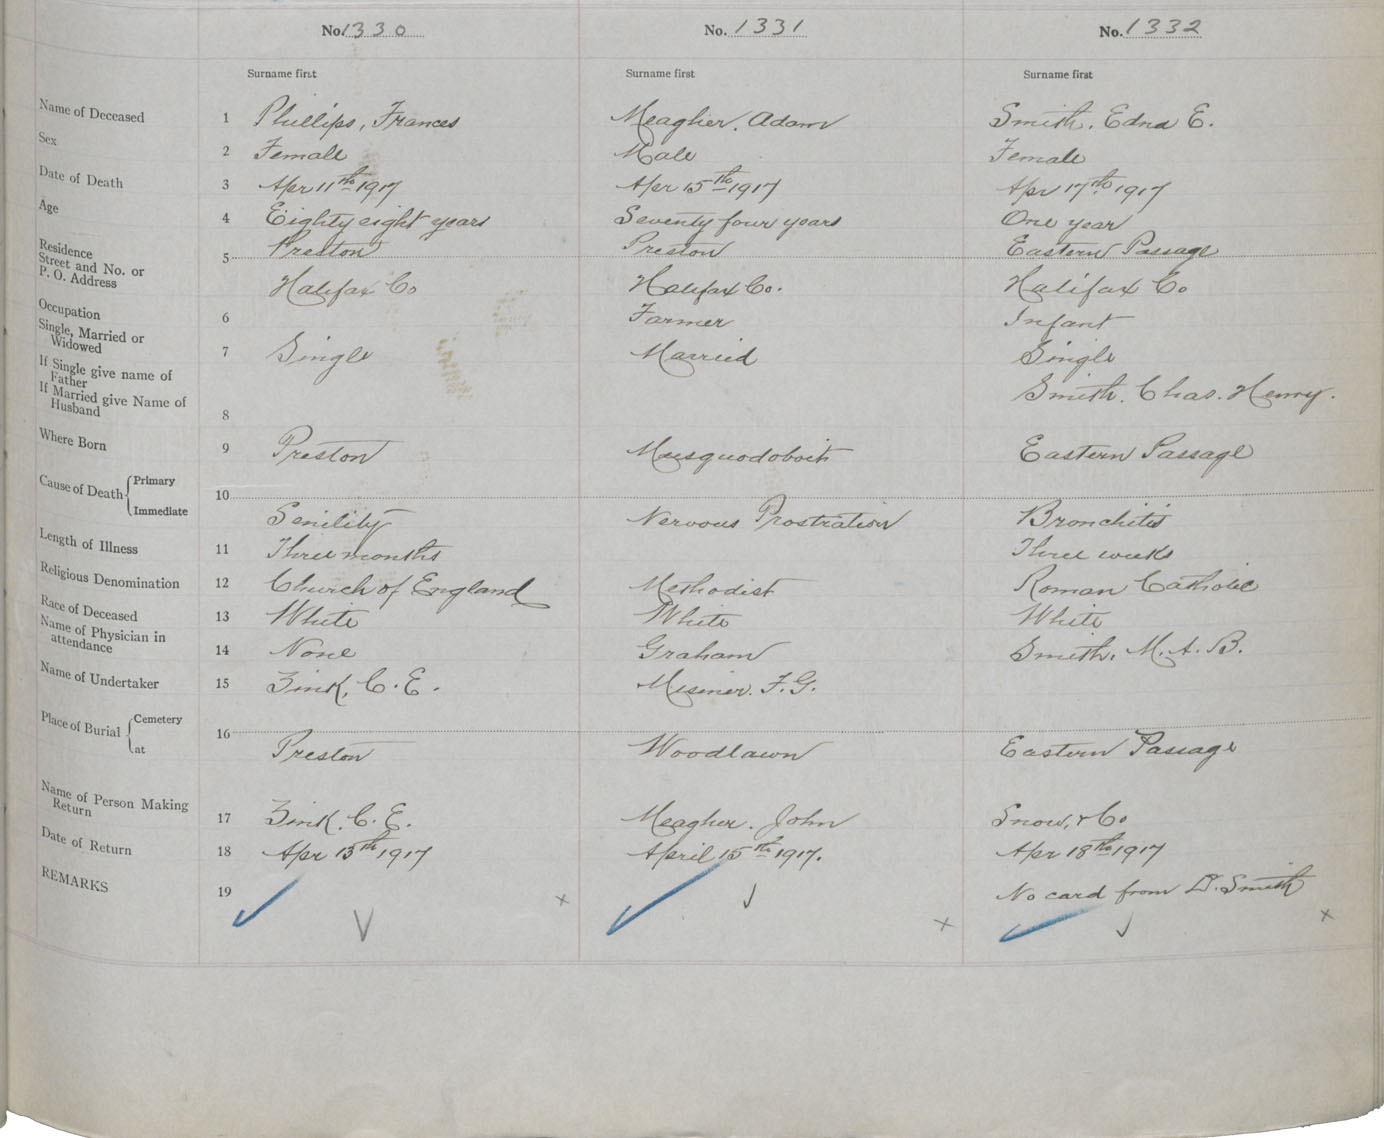 No. 1330 No. 1331 No. 1332
Surname first Surname first Surname first
Name of Deceased 1 Phillips, Frances Meagher, Adam Smith, Edna E.
Sex 2 Female Male Female
Date of Death 3 Apr 11th 1917 Apr 15th 1917 Apr 17th 1917
Age 4 Eighty eight years Seventy four years One year
Residence
Street and No. or
P. O. Address 5 Preston Preston Eastern Passage
Halifax Co Halifax Co. Halifax Co
Occupation 6 Farmer Infant
Single, Married or
Widowed 7 Single Married Single
If Single give name of
Father
If Married give Name of
Husband 8 Smith, Chas. Henry.
Where Born 9 Preston Musquodoboit Eastern Passage
Cause of Death Primary 10
Immediate Senility Nervous Prostration Bronchitis
Length of Illness 11 Three months Three weeks
Religious Denomination 12 Church of England Methodist Roman Catholic
Race of Deceased 13 White White White
Name of Physician in
attendance 14 None Graham Smith, M. A. B.
Name of Undertaker 15 Zink, C. E. Misener, F. G.
Place of Burial Cemetery 16
at Preston Woodlawn Eastern Passage
Name of Person Making
Return 17 Zink, C. E. Meagher, John Snow, & Co
Date of Return 18 Apr 13th 1917 April 15th 1917. Apr 18th 1917
REMARKS 19 No card from D. Smith